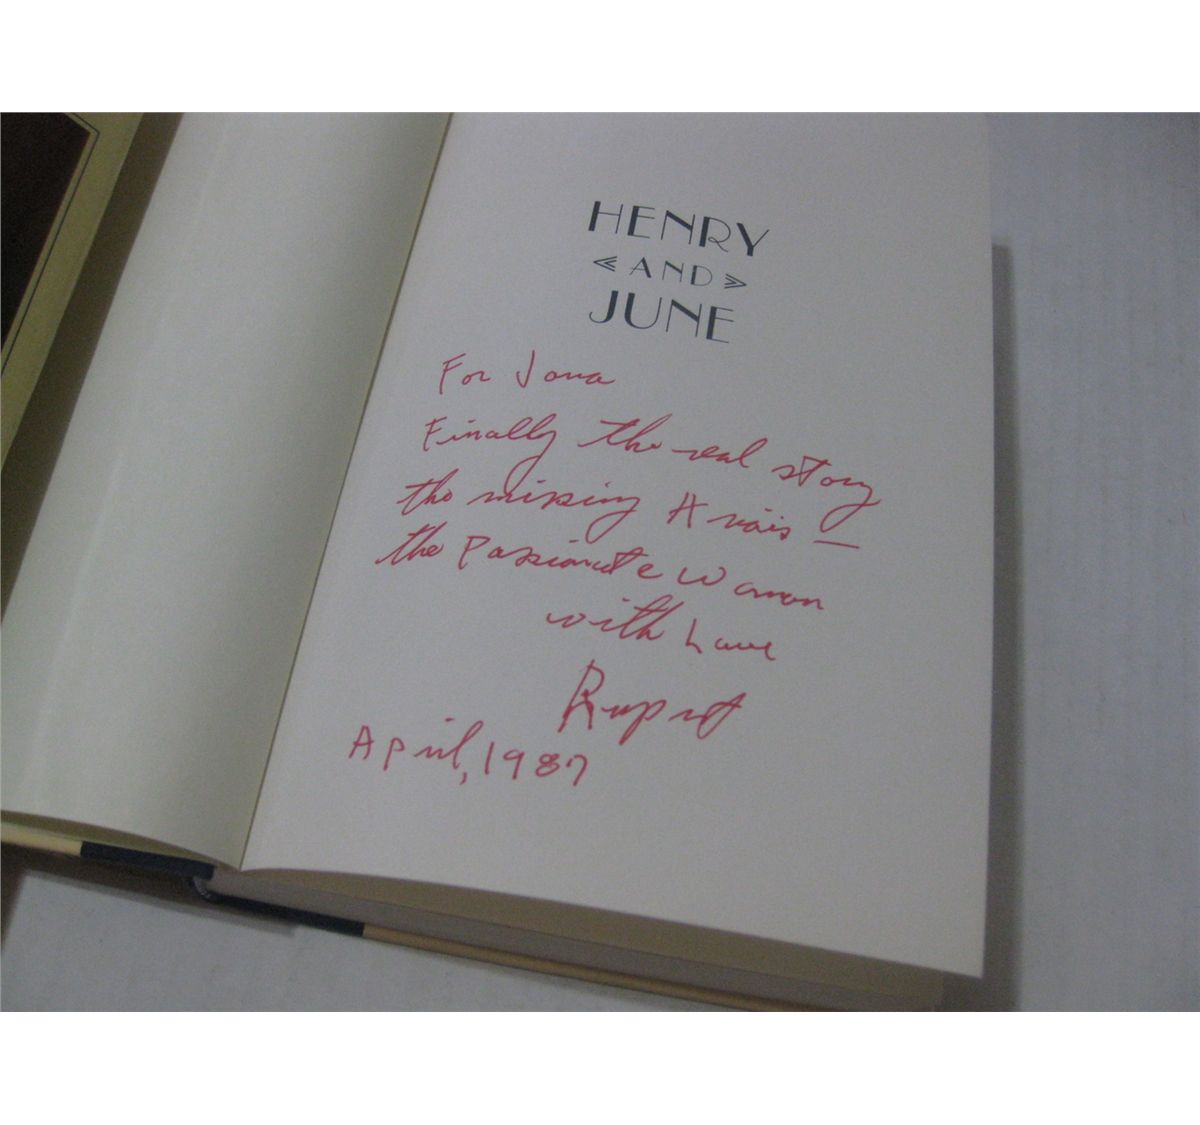 HENRY
« AND »
JUNE
For Jona
Finally the real story
the missing Anaïs —
the Passionate Woman
with Love
Rupert
April, 1987